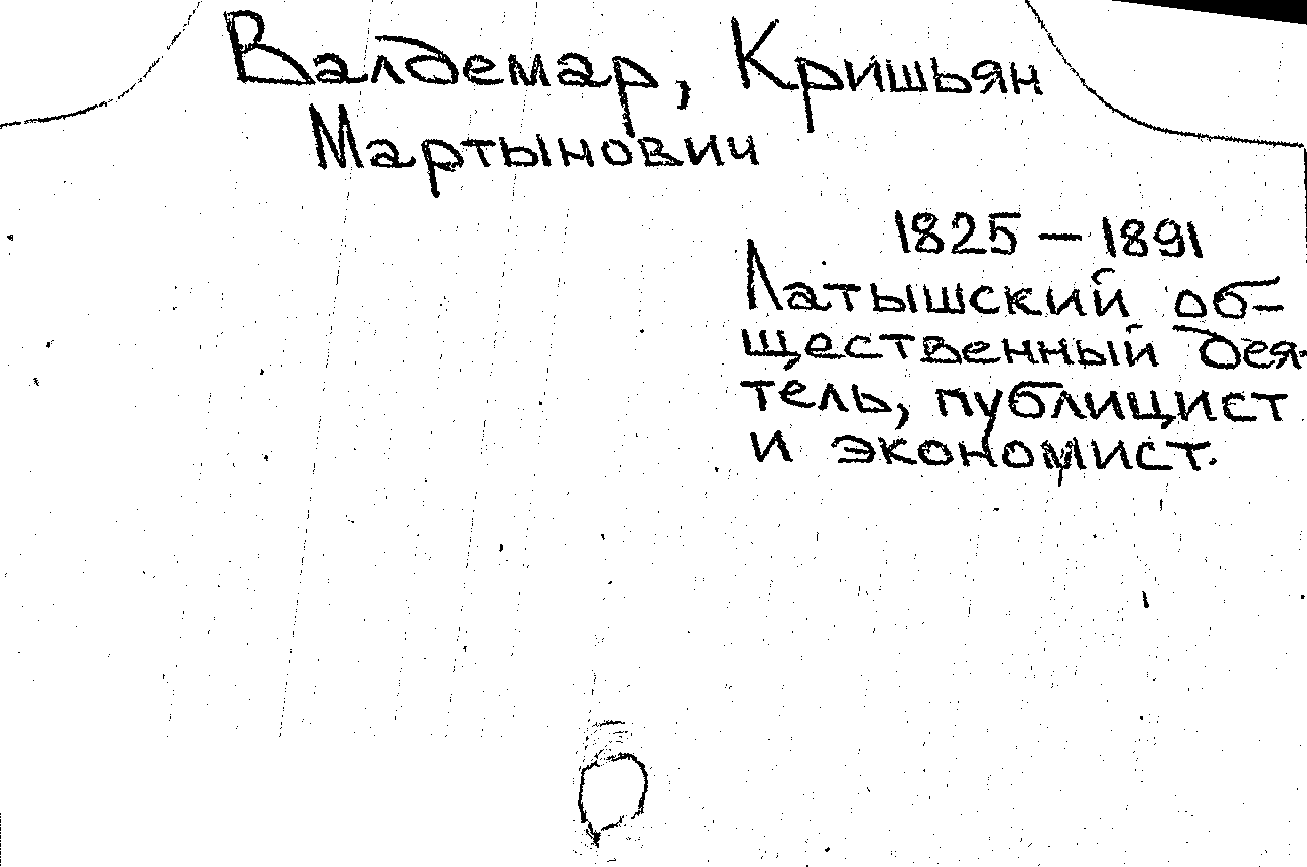 Валдемар, Кришьян
Мартынович
1825 – 1891
Латышский об-
щественный дея-
тель, публицист
и экономист.